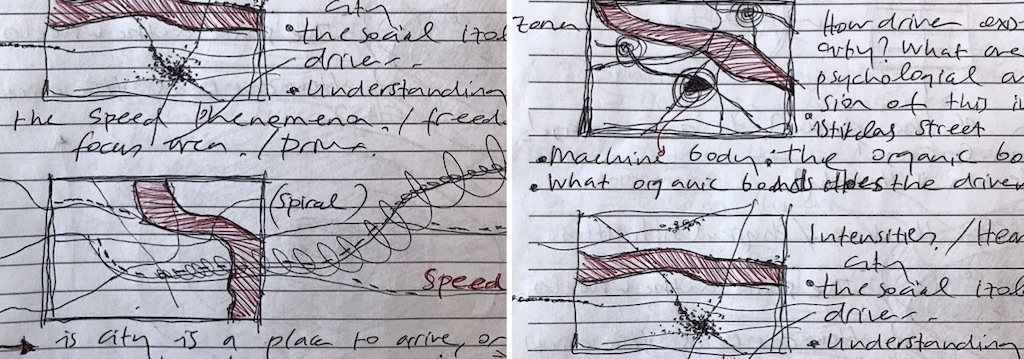 city
• the social izol
driver..
• Understanding
the speed phenomena. / freed
focus area. /
(Spiral)
Speed
is city is a place to arrive, or
zones
How driver exp
What are
psychologial a
sion of this i
• Istiklas street
• Machine body : the organic bo
• What organic the driver
Intensities. / Hear
city
• the social izol
driver..
• Understanding